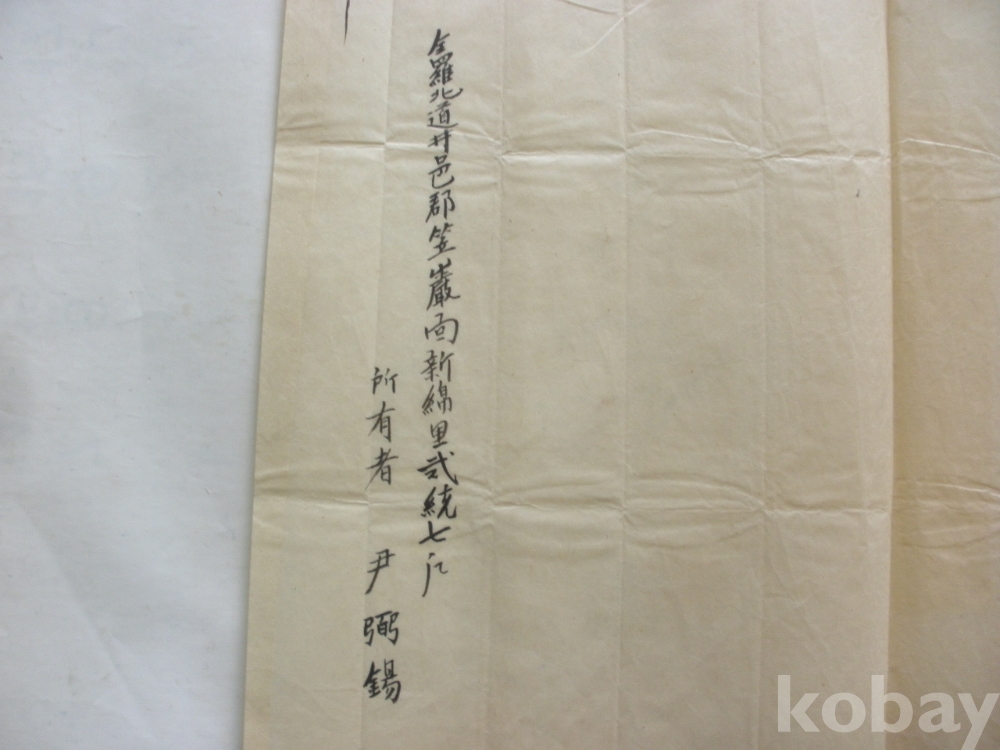 全羅北道井邑郡笠巖面新綿里貳統七戶
所有者 尹弼錫
kobay